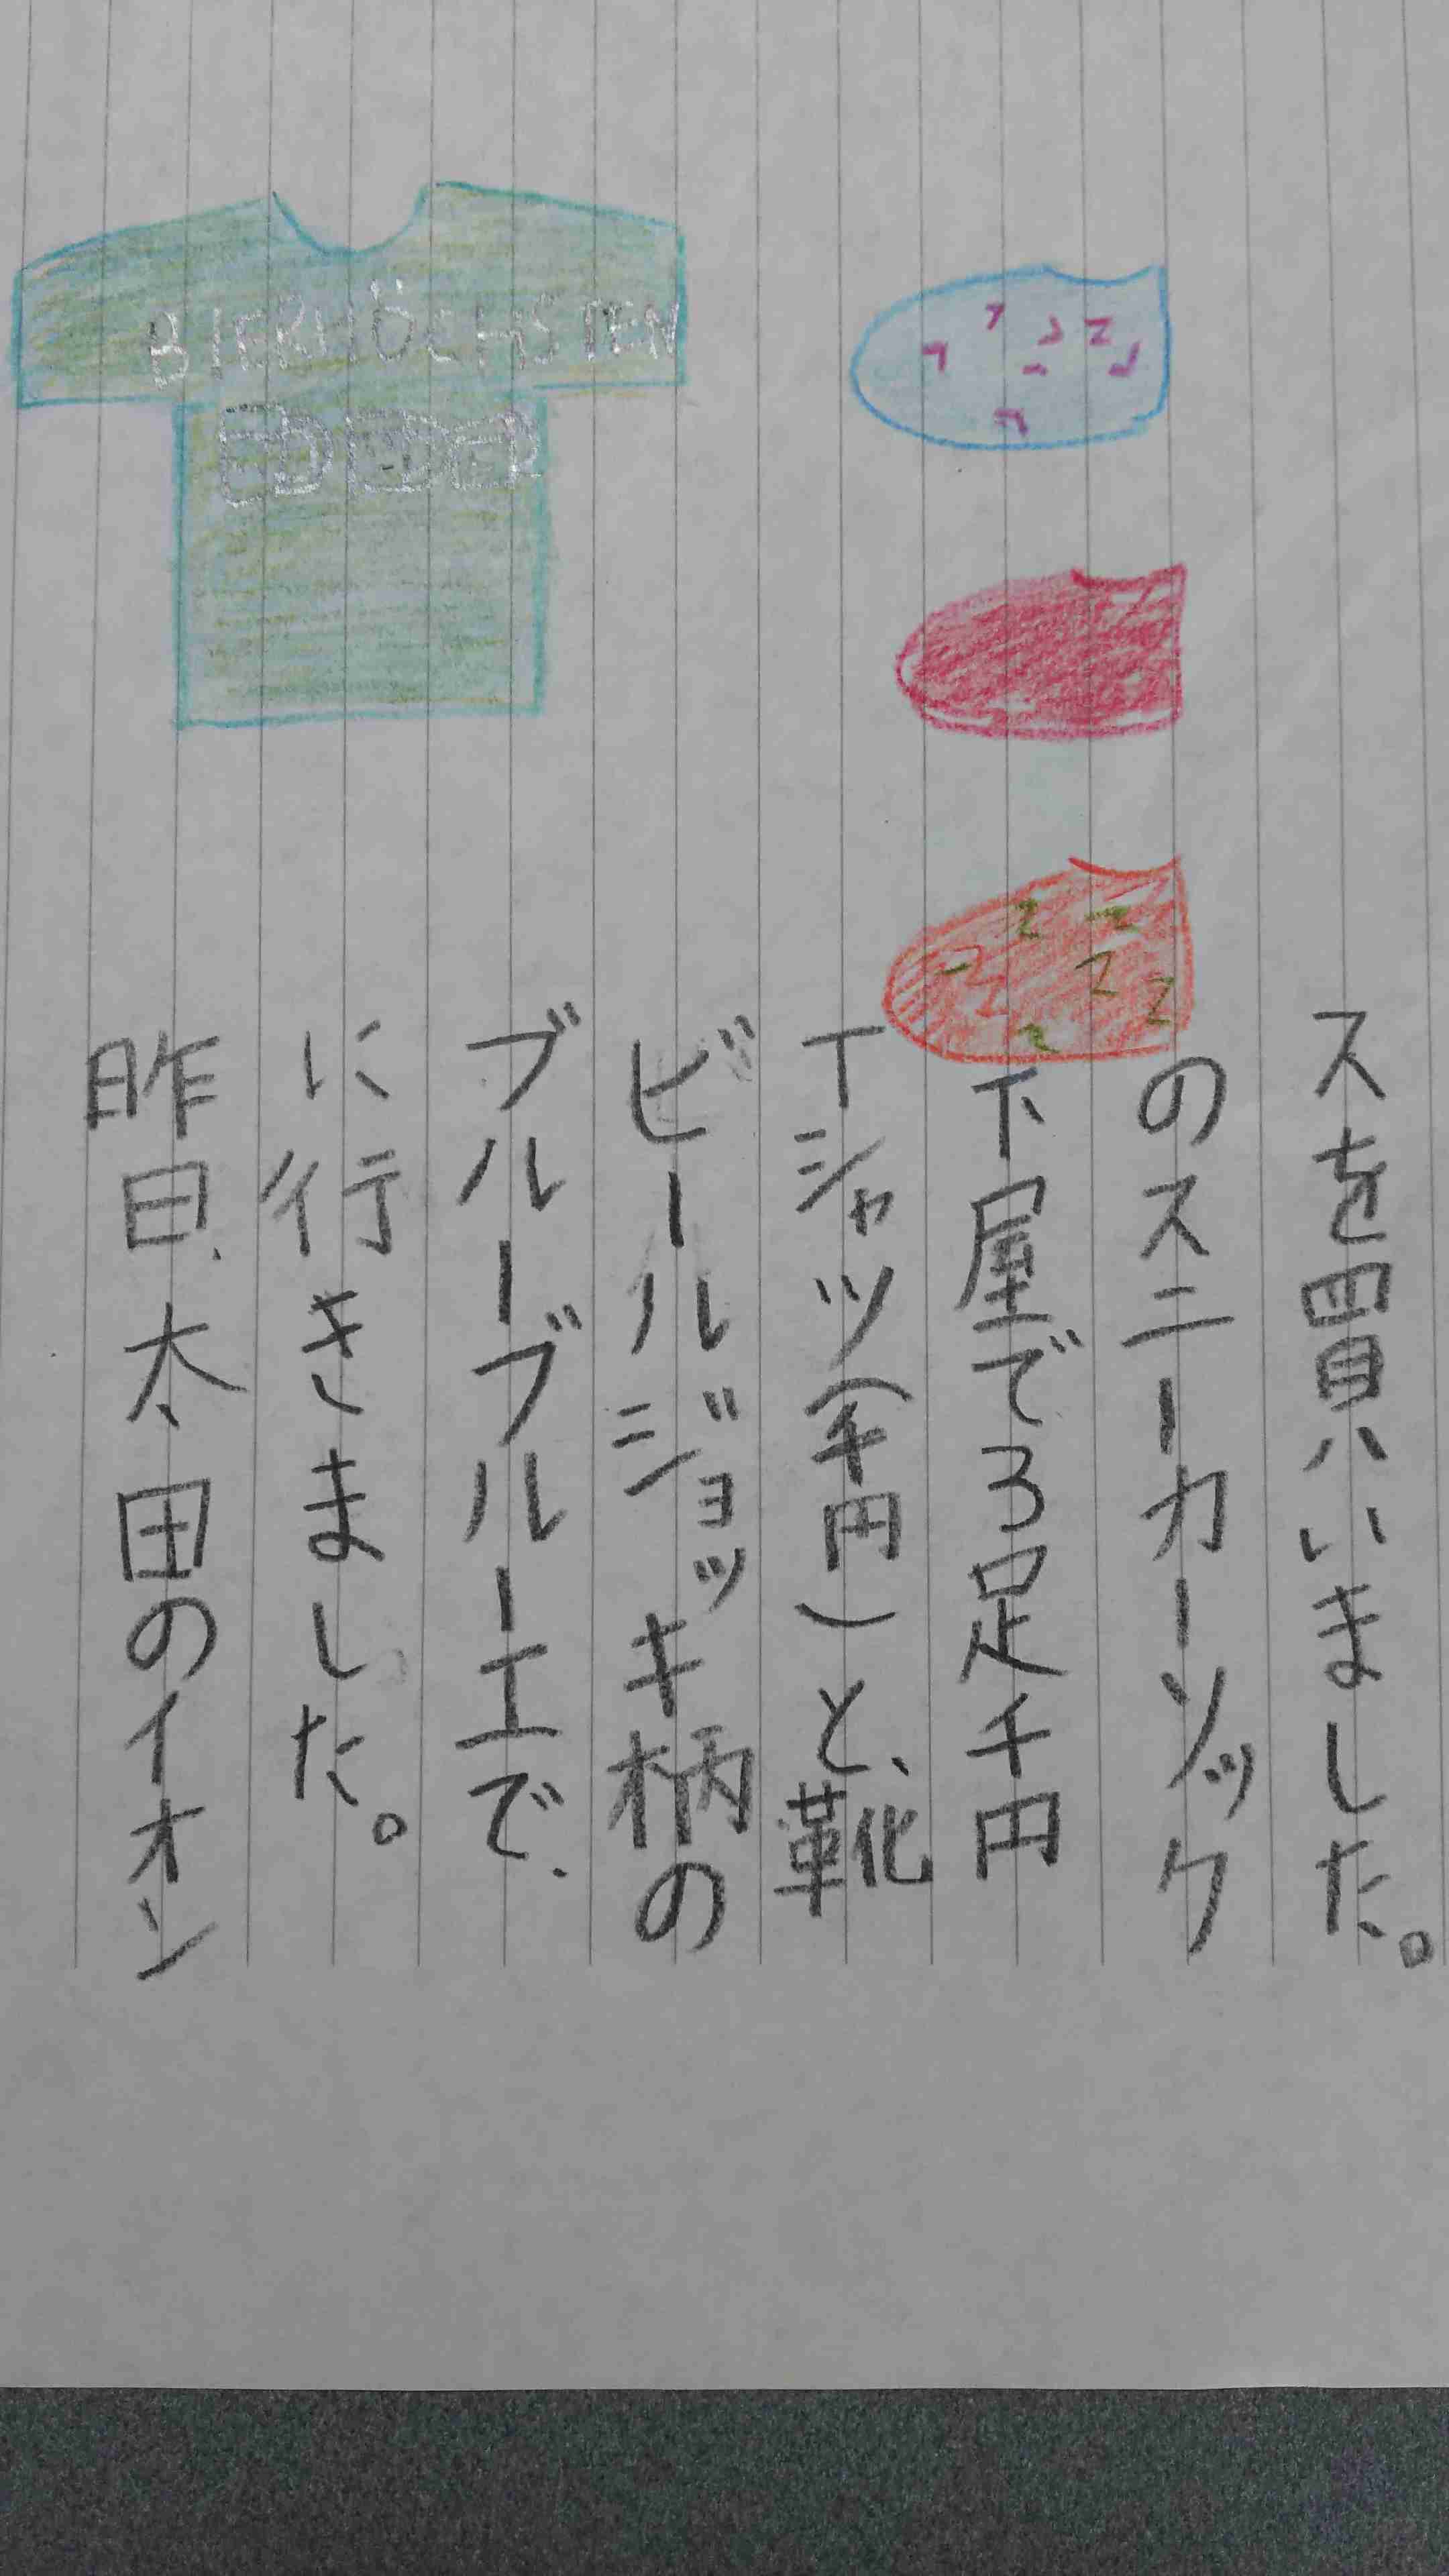 BIERHÖCHSTEN
昨日、太田のイオン
に行きました。
ブルーブルーエで、
ビールジョッキ柄の
Tシャツ(千円)と、靴
下屋で3足千円
のスニーカーソック
スを買いました。